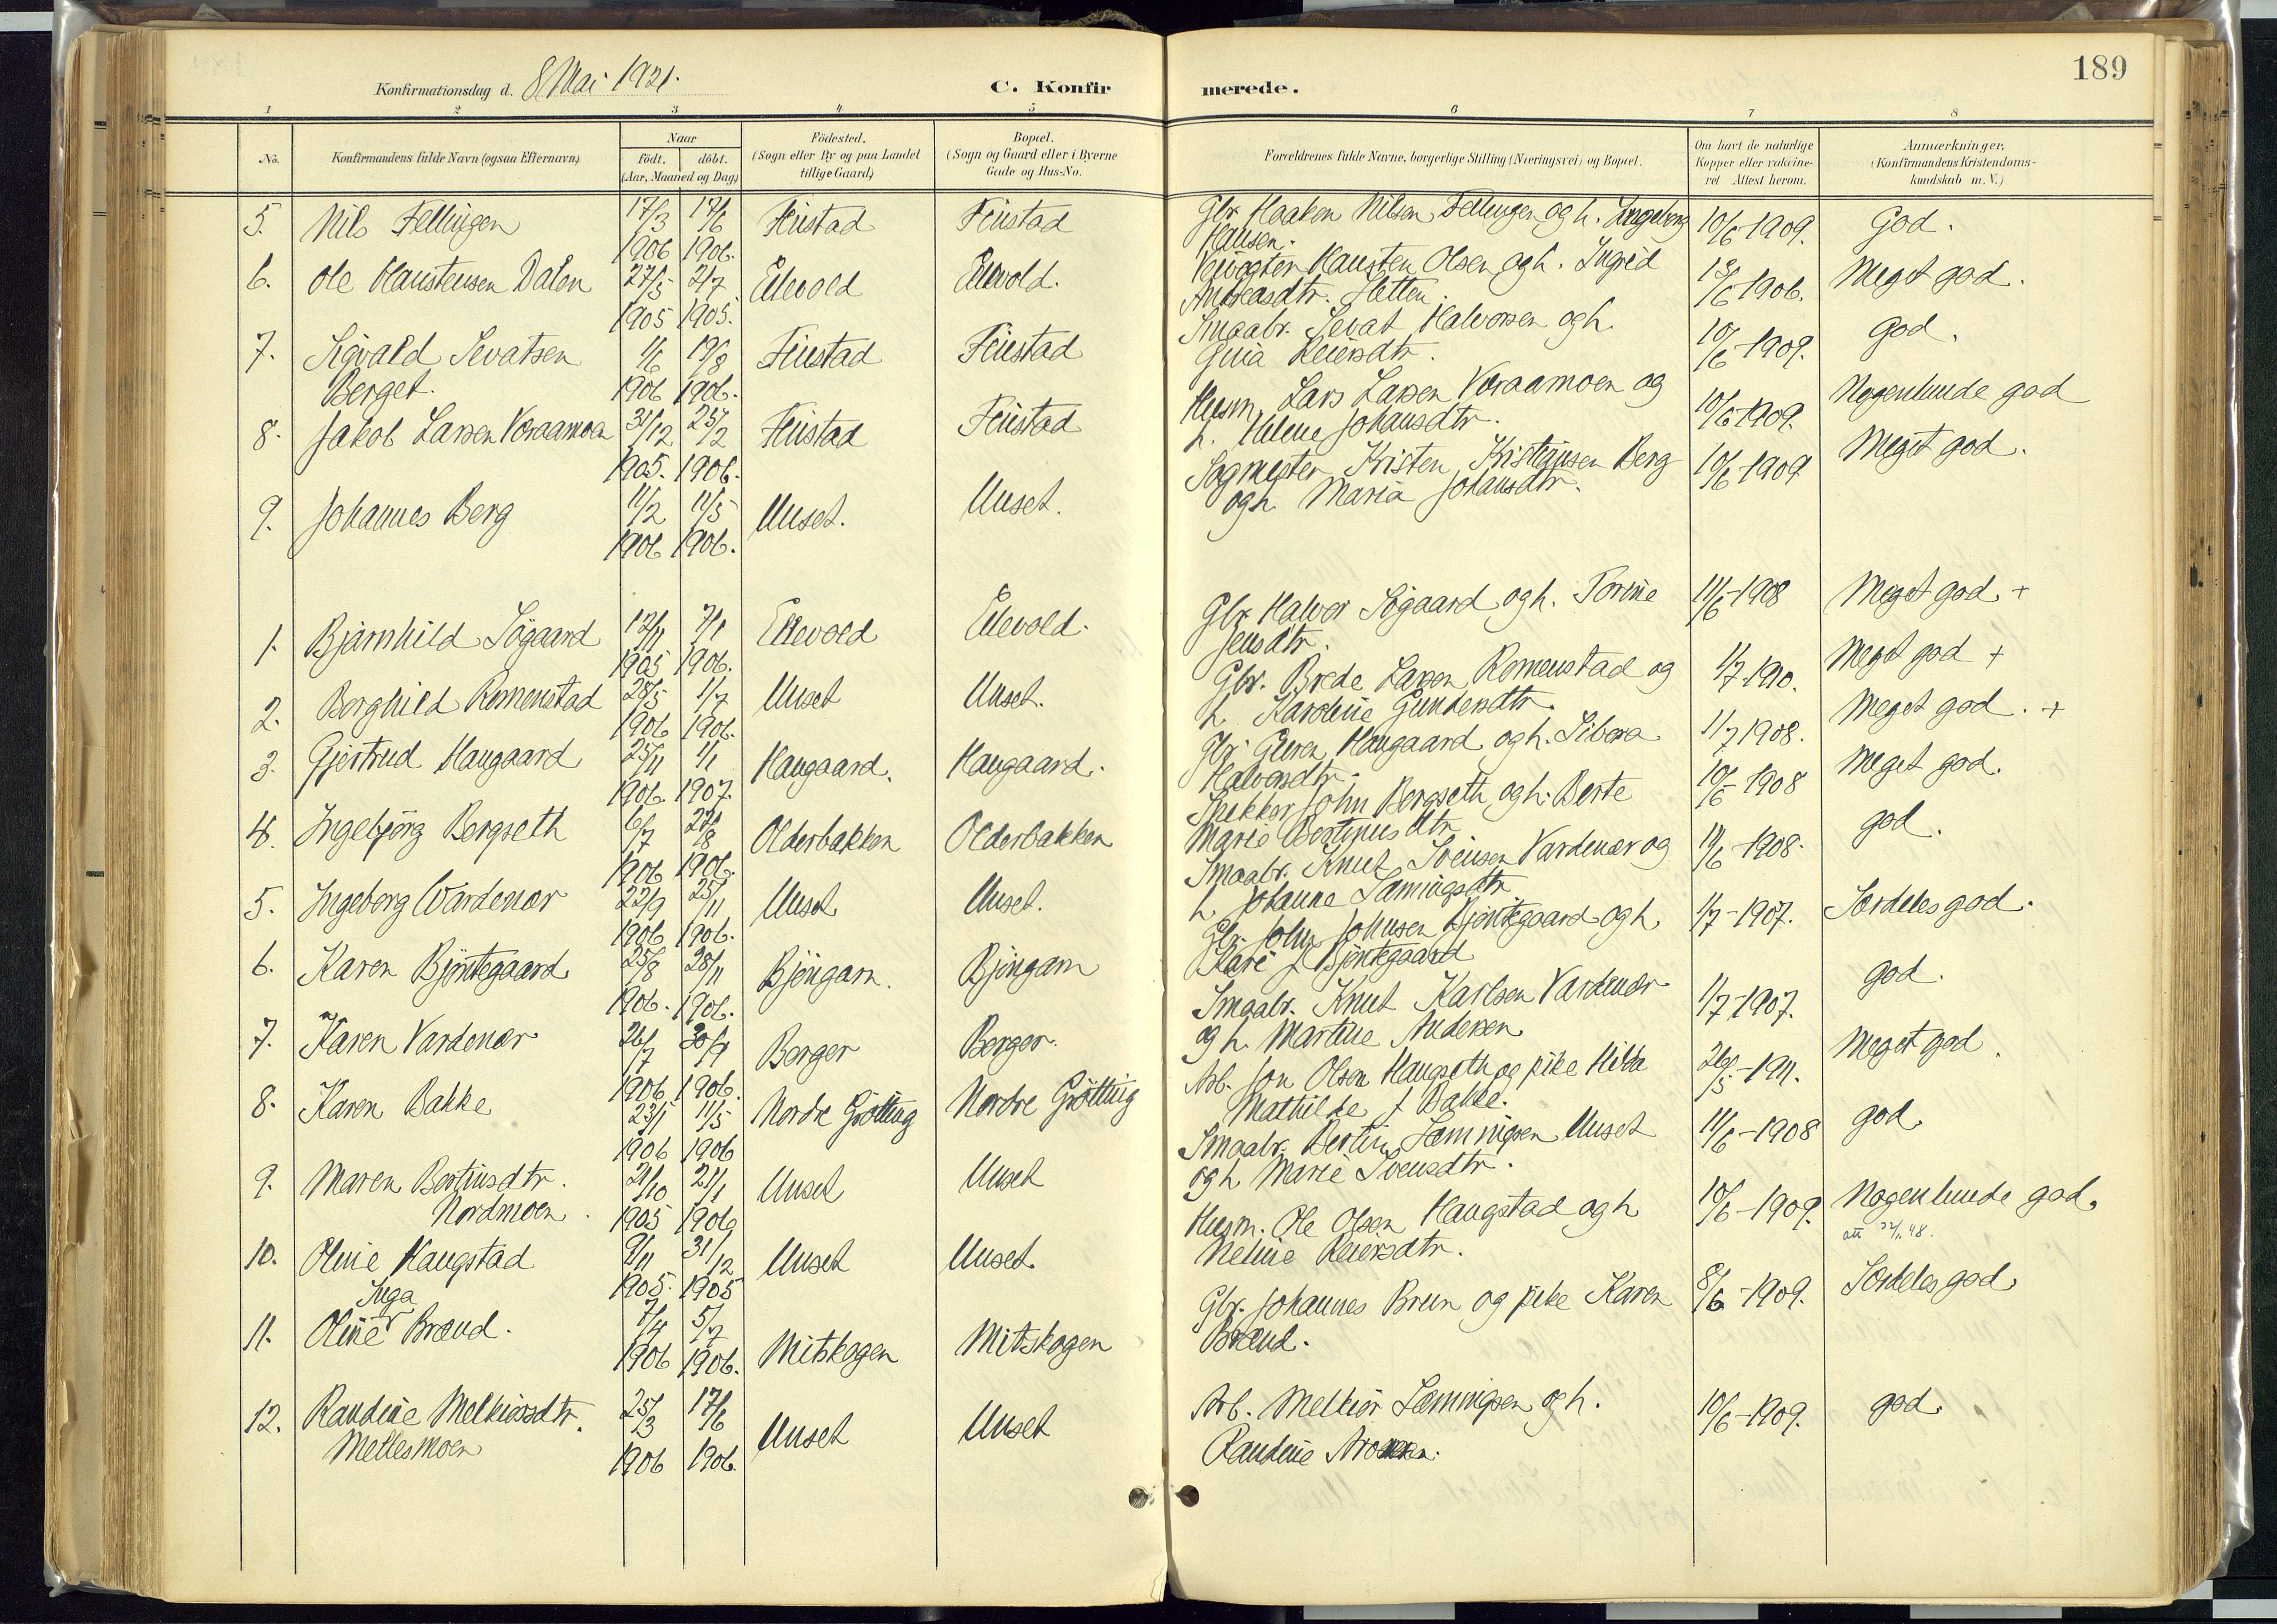 189
Konfirmationsdag d. 8 Mai 1921.
C. Konfirmerede.
1 2 3 4 5 6 7 8
No. Konfirmandens fulde Navn (ogsaa Efternavn) Naar födt. döbt. (Aar, Maaned og Dag) Födested. (Sogn eller By og paa Landet tillige Gaard) Bopæl. (Sogn og Gaard eller i Byerne Gade og Hus-No. Forældrenes fulde Navne, borgerlige Stilling (Næringsvei) og Bopæl. Om havt de naturlige Kopper eller vakcineret Attest herom. Anmærkninger. (Konfirmandens Kristendomskundskab m. V.)
5. Nils Fellingen 17/3 1906 17/6 1906. Finstad Finstad Gbr. Haaken Nilsen Fellingen og h. Ingeborg Hansen. 10/6-1909. God.
6. Ole Haustensen Dalen 27/5 1905 2/7 1905. Ellevold Ellevold. Veivogter Hausten Olsen og h. Ingrid Andreasdtr. 1906. Meget god.
7. Sigvald Sevatsen Berget. 1/6 1906 19/8 1906. Finstad Finstad Smaabr. Sevat Halvorsen og h. Gina Reiersdtr. 10/6-1909. God.
8. Jakob Larsen Voraamoen 31/12 1905. 25/2 1906. Finstad Finstad Husm. Lars Larsen Voraamoen og h. Helene Johansdtr. 10/6-1909. Nogenlunde god
9. Johannes Berg 11/2 1906 11/5 1906. Unset. Unset. Sagmester Kristen Kristensen Berg og h. Maria Johansdtr. 10/6-1909 Meget god.
1. Bjarnhild Sögaard 12/11 1905 7/1 1906. Ellevold Ellevold. Gbr. Halvor Sögaard og h. Torine Jensdtr. 11/6-1908 Meget god. +
2. Borghild Romenstad 28/5 1906 1/7 1906. Unset Unset. Gbr. Brede Larsen Romenstad og h. Karoline Gundersdtr. 1/7-1910. Meget god +
3. Gjertrud Haugaard 25/11 1906. 1/1 1907. Haugaard. Haugaard. Gbr. Haugaard og h. Halvorsdtr. 1/7 1908. Meget god. +
4. Ingebjörg Bergseth 6/7 1906 27/8 1906. Olderbakken Olderbakken Snekker John Bergseth og h. Berte Marie Bertinusdtr 10/6-1908 Meget god.
5. Ingeborg Vardenær 22/9 1906 25/11 1906. Unset Unset. Smaabr. Knut Svensen Vardenær og h. Johanne Sæmingsdtr. 11/6-1908. god.
6. Karen Bjöntegaard 25/8 1906. 28/11 1906. Bjöngarn. Bjöngarn Gbr. John Johnsen Bjöntegaard og h. Kari f Bjöntegaard 1/7-1907. Særdeles god.
7. Karen Vardenær 26/7 1906 30/9 1906. Berger Berger. Smaabr. Knut Karlsen Vardenær og h. Martine Andersen 1/7-1907. god.
8. Karen Bakke 23/1 1906 11/5 1906 Nordre Grötting Nordre Grötting Arb. Jon Olsen Haugseth og pike Hilda Mathilde f Bakke. 26/5-1911. Meget god.
9. Maren Bertinsdtr. Nordmoen 21/10 1905 21/1 1906 Unset Unset Smaabr. Bertin Sæmingsen Unset og h Marie Svensdtr. 11/6-1908 god.
10. Oline Haugstad 9/11 1905. 31/12 1905 Unset Unset. Husm. Ole Olsen Haugstad og h Heline Reiersdtr. 10/6-1909. Nogenlunde god.
att 22/1 48.
11. Oline Inga Brænd. 7/4 1906 5/7 1906. Mitskogen Mitskogen Gbr. Johannes Brun og pike Karen Brænd. 8/6-1909. Særdeles god.
12. Randine Melkiorsdtr. Mellesmoen 25/3 1906 17/6 1906. Unset Unset Arb. Melkior Sæmingsen og h. Randine 10/6-1909. god.